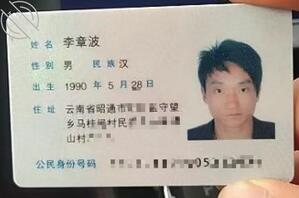 姓名 李章波
性别 男 民族 汉
出生 1990 年 5 月 28 日
住址 云南省昭通市 守望
乡马 村民
山村
公民身份号码 05